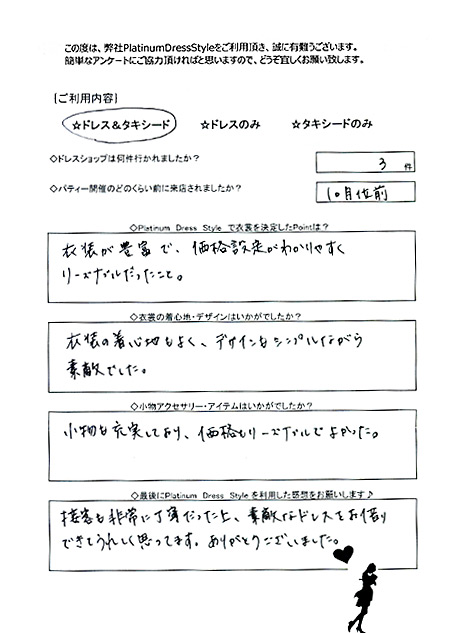 この度は、弊社PlatinumDressStyleをご利用頂き、誠に有難うございます。
簡単なアンケートにご協力頂ければと思いますので、どうぞ宜しくお願い致します。
[ご利用内容]
☆ドレス&タキシード ☆ドレスのみ ☆タキシードのみ
◇ドレスショップは何件行かれましたか?
3 件
◇パティー開催のどのくらい前に来店されましたか?
10月位前
◇Platinum Dress Style で衣裳を決定したPointは?
衣装が豊富で、価格設定がわかりやすく
リーズナブルだったこと。
◇衣裳の着心地・デザインはいかがでしたか?
衣装の着心地もよく、デザインもシンプルながら
素敵でした。
◇小物アクセサリー・アイテムはいかがでしたか?
小物も充実しており、価格もリーズナブルでよかった。
◇最後にPlatinum Dress Style を利用した感想をお願いします♪
接客も非常に丁寧だった上、素敵なドレスをお借り
できてうれしく思ってます。ありがとうございました。